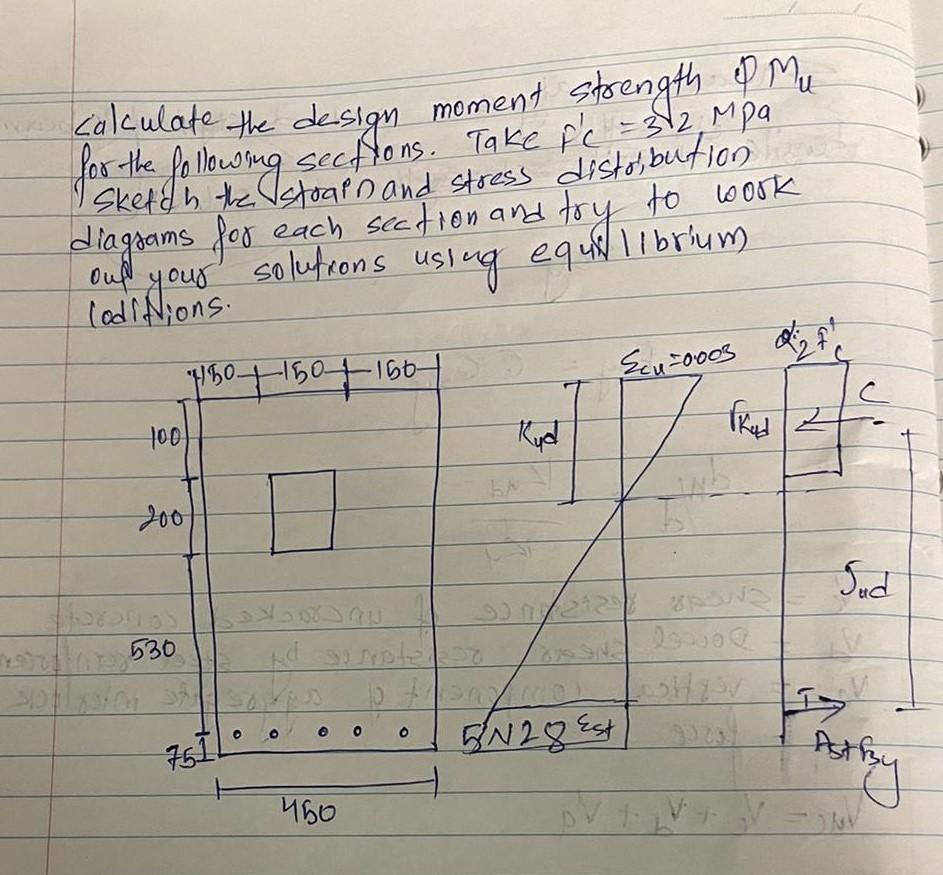 calculate the design moment strength ΦMu
for the following sections. Take f'c = 32 MPa
Sketch the strain and stress distribution
diagrams for each section and try to work
out your solutions using equilibrium
coditions.
150 150 150
100
200
530
75
450
5N28
Kud
εcu=0.003
εst
α2f'c
γKud
C
Jud
T
Astfsy